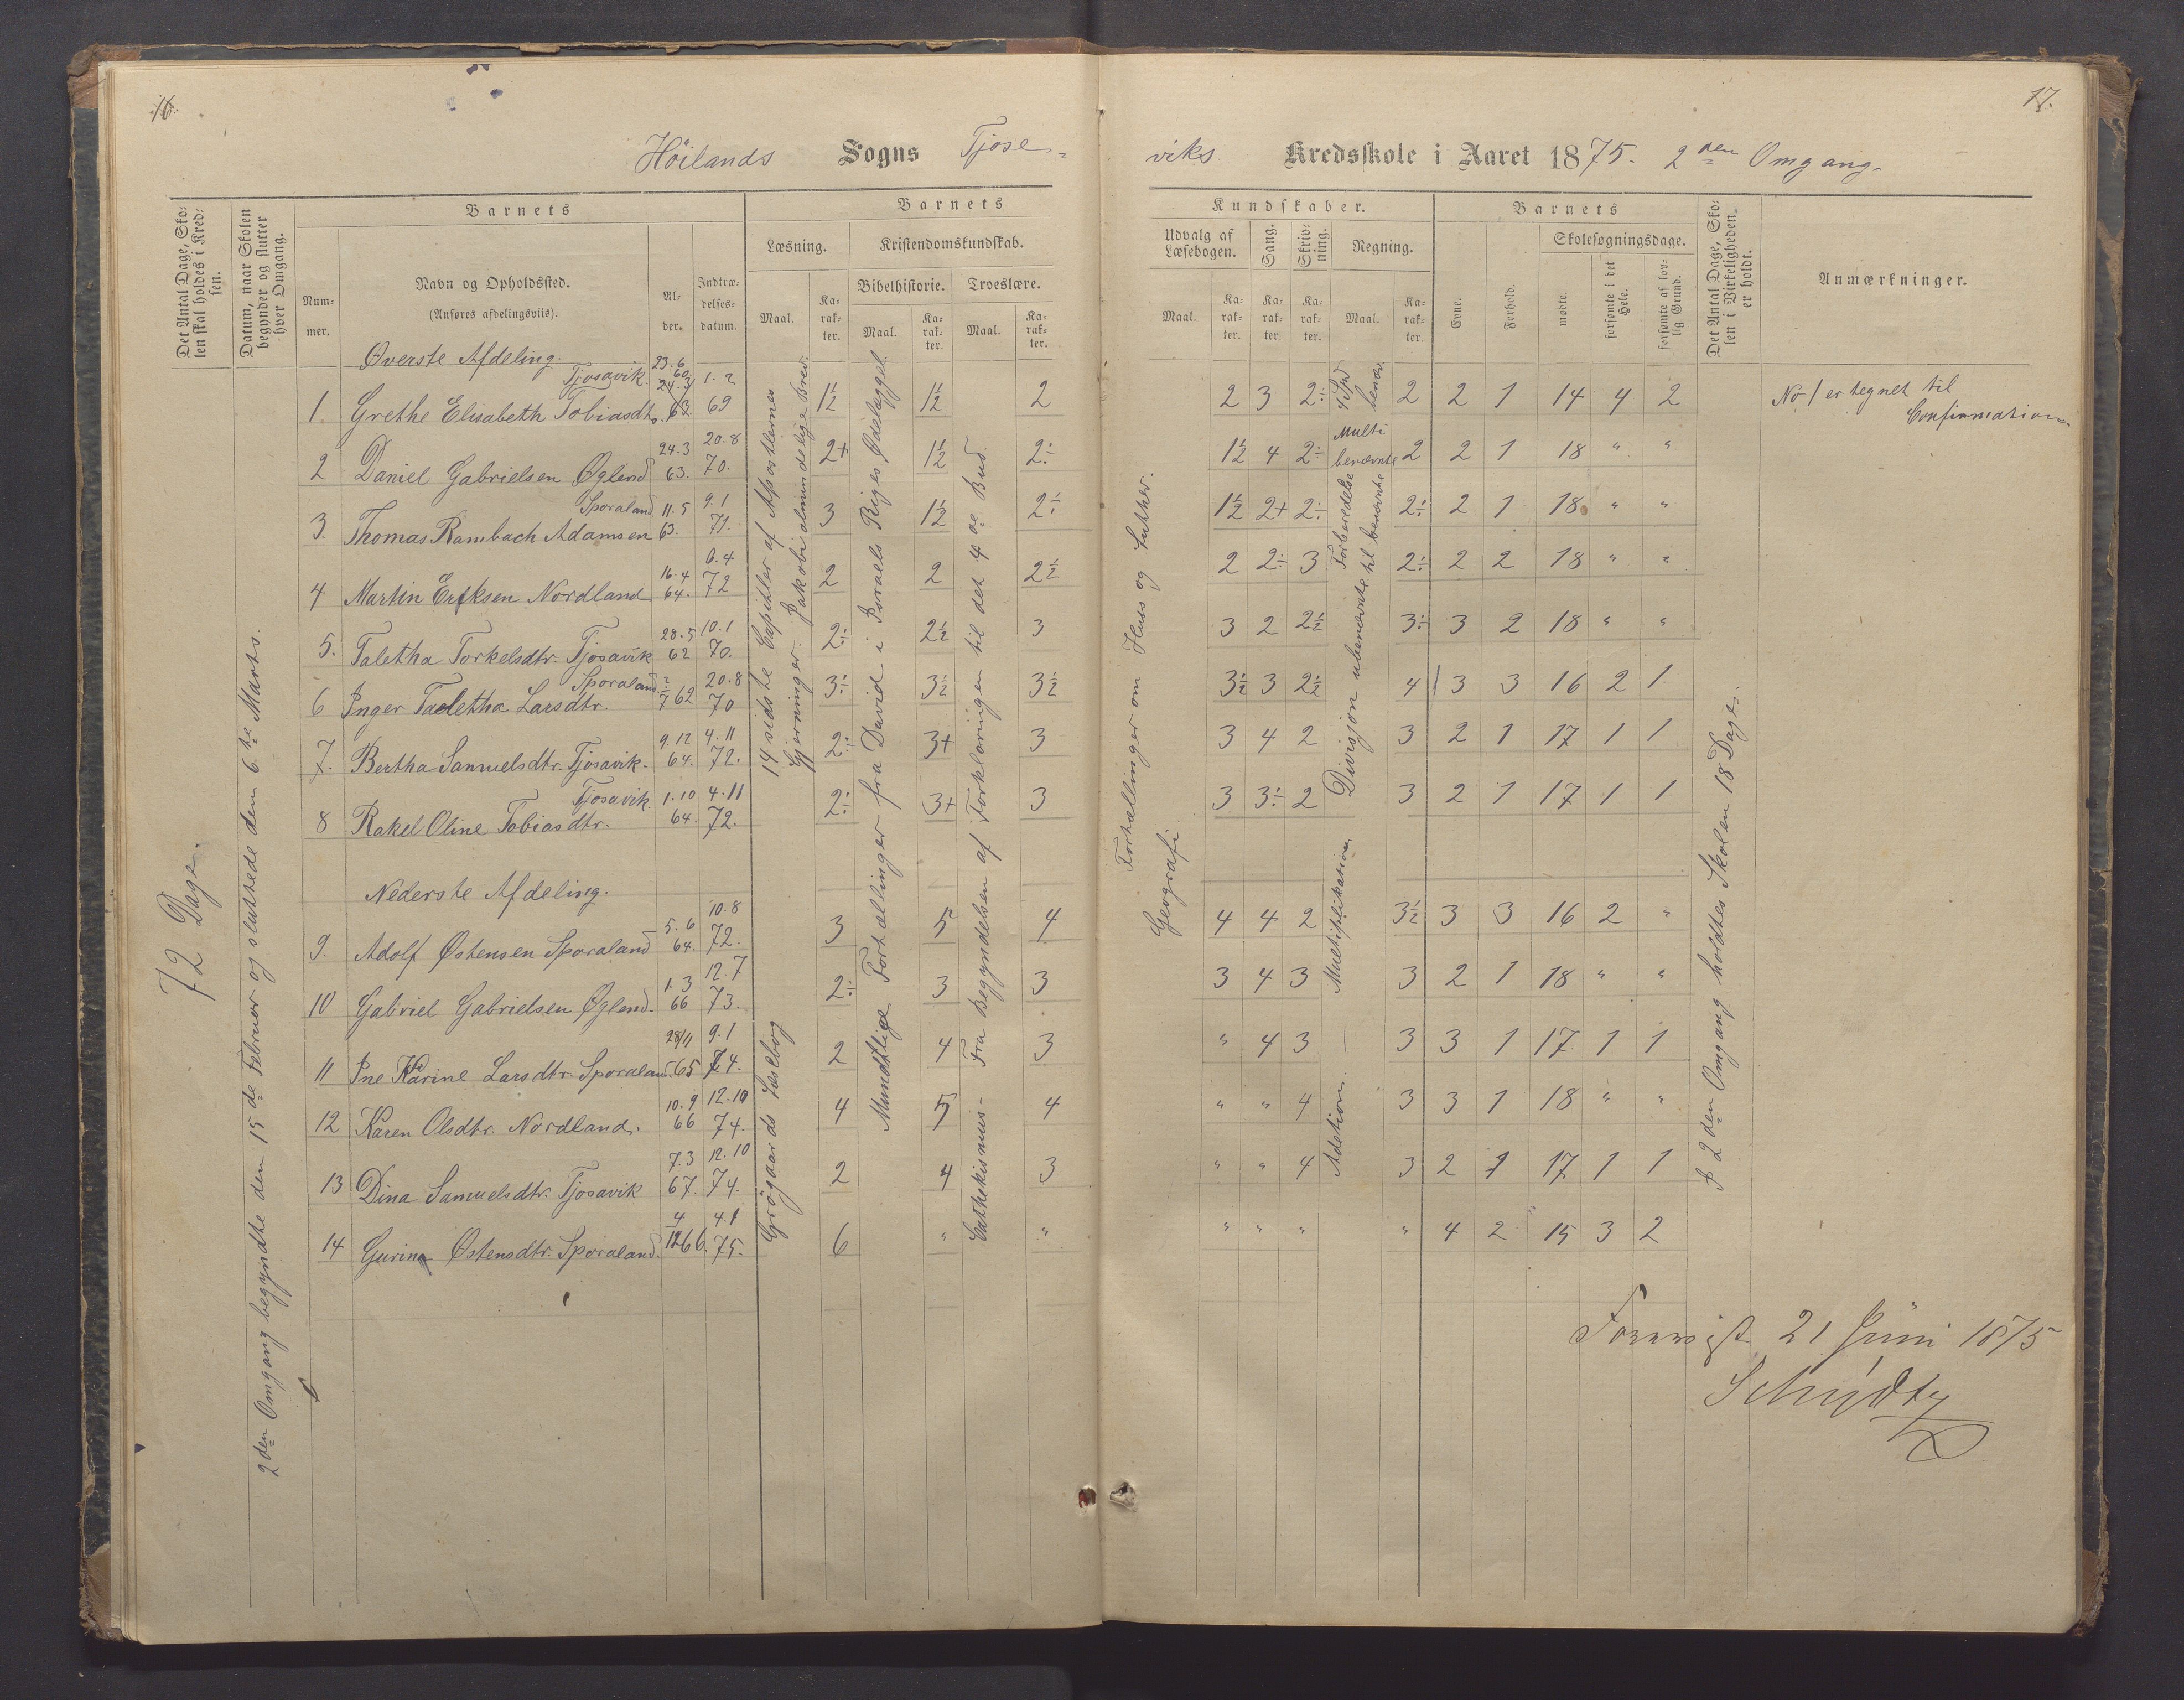 16.
17.
Höilands Sogns Tjose=
viks Kredsskole i Aaret 1875. 2den Omgang.
Det Antal Dage, Sko=
len skal holdes i Kred=
sen.
Datum, naar Skolen
begynder og slutter
hver Omgang.
Barnets
Num=
mer.
Navn og Opholdssted.
(Anføres afdelingsviis).
Al=
der.
Indtræ=
delses=
datum.
Barnets
Læsning.
Maal.
Ka=
rak=
ter.
Kristendomskundskab.
Bibelhistorie.
Maal.
Ka=
rak=
ter.
Troeslære.
Maal.
Ka=
rak=
ter.
Kundskaber.
Udvalg af
Læsebogen.
Maal.
Ka=
rak=
ter.
Sang.
Ka=
rak=
ter.
Skriv=
ning.
Ka=
rak=
ter.
Regning.
Maal.
Ka=
rak=
ter.
Barnets
Evne.
Forhold.
Skolesøgningsdage.
mødte.
forsømte i det
Hele.
forsømte af lov=
lig Grund.
Det Antal Dage, Sko=
len i Virkeligheden
er holdt.
Anmærkninger.
72 Dage.
2den Omgang begyndte den 15de Februar og sluttede den 6te Marts.
14 sidste Capitler af Apostlernes
Gjerninger. Jakobi almindelige Brev.
Grögaards Læsebog
Fortællinger fra David i Israels Riges Ødelæggel.
Mundtlige
Forklaringen til det 4de Bud.
Cathekismus- Fra Begyndelsen af
Fortællinger om Huss og Luther.
Geografi
4 Spd benæv
Multi benævnte
Forberedelse til benævnte
Divisjon ubenævnte
Multiplikation
Adetion.
I 2den Omgang holdtes Skolen 18 Dage.
Øverste Afdeling.
1. Grethe Elisabeth Tobiasdtr. Tjosavik. 1.2 69 1½ 1½ 2 2 3 2÷ 2 2 1 14 4 2 No 1 er tegnet til
Confirmation.
2 Daniel Gabrielsen Øglend 24.3 63. 20.8 70. 2+ 1½ 2÷ 1½ 4 2÷ 2 2 1 18 " "
3. Thomas Rambach Adamsen Sporaland 11.5 63. 9.1 71. 3 1½ 2÷ 1½ 2+ 2÷ 2÷ 2 1 18 " "
4 Martin Eriksen Nordland 16.4 64. 6.4 72 2 2 2½ 2 2÷ 3 2÷ 2 2 18 " "
5. Taletha Torkelsdtr. Tjosavik 28.5 62 10.1 70. 2÷ 2½ 3 3 2 2½ 3÷ 3 2 18 " "
6 Inger Taletha Larsdtr. Sporaland 7 62 20.8 70 3÷ 3½ 3½ 3½ 3 2½ 4 3 3 16 2 1
7. Bertha Samuelsdtr. Tjosavik. 9.12 64. 4.11 72. 2÷ 3+ 3 3 4 2 3 2 1 17 1 1
8 Rakel Oline Tobiasdtr. Tjosavik. 1.10 64. 4.11 72. 2÷ 3+ 3 3 3÷ 2 3 2 1 17 1 1
Nederste Afdeling.
9. Adolf Østensen Sporaland 5.6 64. 10.8 72. 3 5 4 4 4 2 3½ 3 3 16 2 "
10 Gabriel Gabrielsen Øglend. 1.3 66 12.7 73. 2÷ 3 3 3 4 3 3 2 1 18 " "
11 Ine Karine Larsdtr. Sporaland. 28/11 65 9.1 74. 2 4 3 " 4 3 — 3 3 1 17 1 1
12 Karen Olsdtr. Nordland. 10.9 66 12.10 74. 4 5 4 " " 4 3 3 1 18 " "
13 Dina Samuelsdtr. Tjosavik 7.3 67. 12.10 74. 2 4 3 " " 4 3 2 1 17 1 1
14 Gurina Østensdtr. Sporaland. 4/12 66. 4.1 75. 6 " " " " " " 4 2 15 3 2
21 Juni 1875